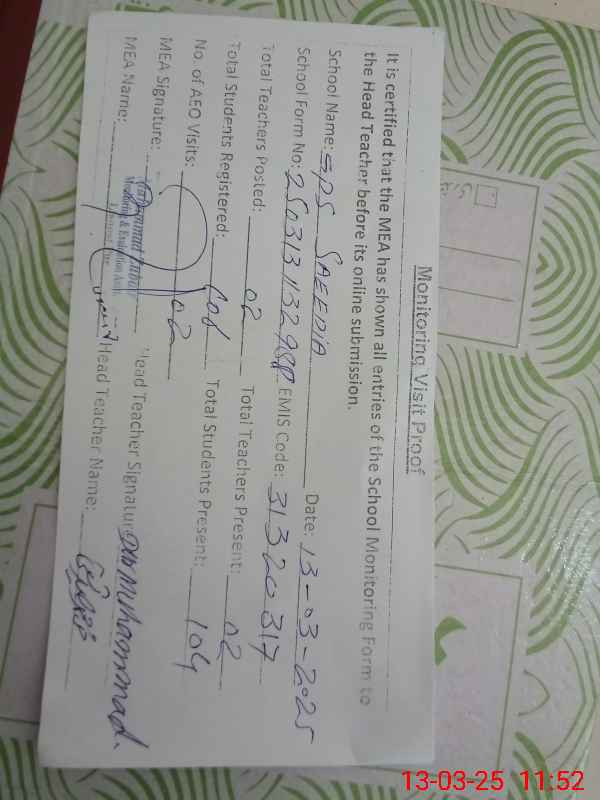 Monitoring Visit Proof
It is certified that the MEA has shown all entries of the School Monitoring Form to
the Head Teacher before its online submission.
School Name: GPS SAEEDIA Date: 13-03-2025
School Form No: EMIS Code: 31320317
Total Teachers Posted: 02 Total Teachers Present: 02
Total Students Registered: Total Students Present: 104
No. of AEO Visits: 02
MEA Signature: Head Teacher Signature: Muhammad
Monitoring & Evaluation
MEA Name: Head Teacher Name:
13-03-25 11:52